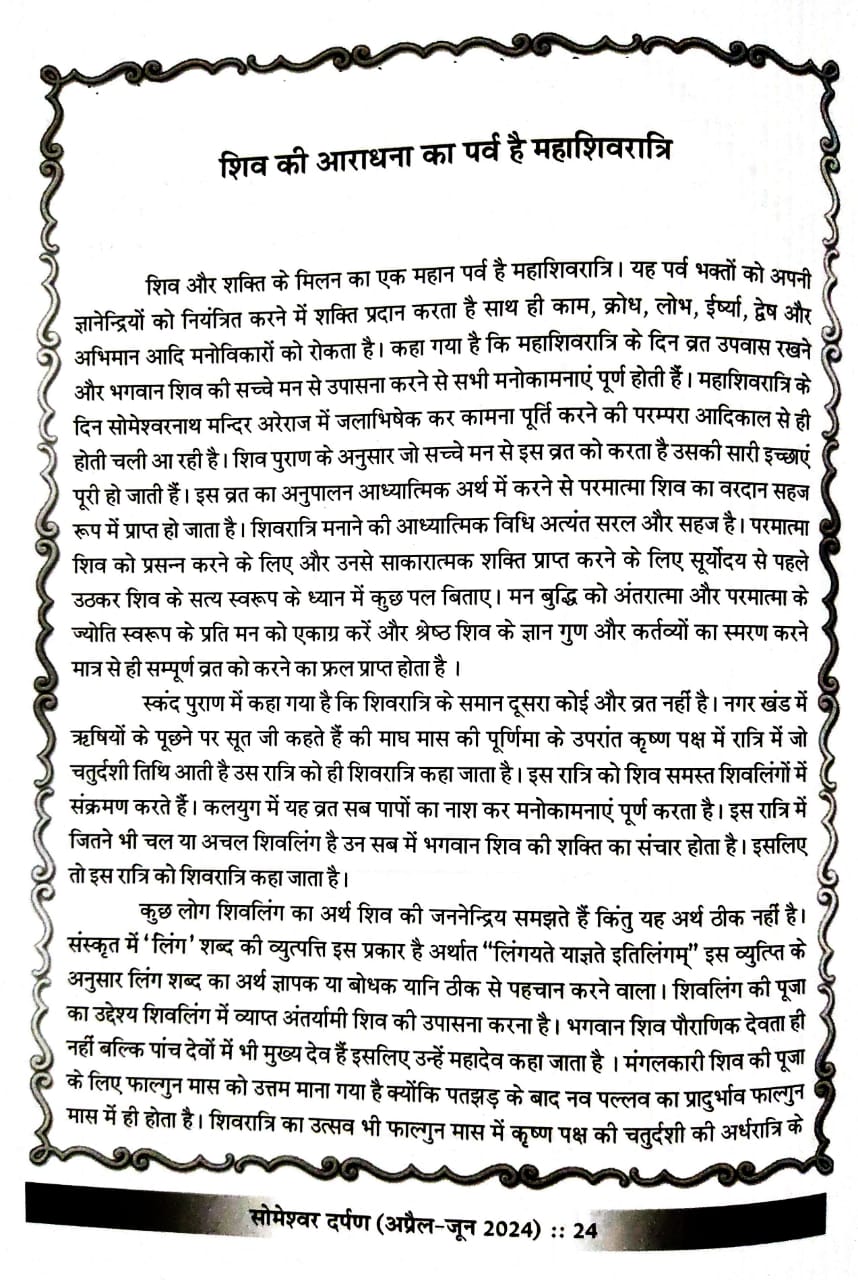 शिव की आराधना का पर्व है महाशिवरात्रि
शिव और शक्ति के मिलन का एक महान पर्व है महाशिवरात्रि। यह पर्व भक्तों को अपनी
ज्ञानेन्द्रियों को नियंत्रित करने में शक्ति प्रदान करता है साथ ही काम, क्रोध, लोभ, ईर्ष्या, द्वेष और
अभिमान आदि मनोविकारों को रोकता है। कहा गया है कि महाशिवरात्रि के दिन व्रत उपवास रखने
और भगवान शिव की सच्चे मन से उपासना करने से सभी मनोकामनाएं पूर्ण होती हैं। महाशिवरात्रि के
दिन सोमेश्वरनाथ मन्दिर अरेराज में जलाभिषेक कर कामना पूर्ति करने की परम्परा आदिकाल से ही
होती चली आ रही है। शिव पुराण के अनुसार जो सच्चे मन से इस व्रत को करता है उसकी सारी इच्छाएं
पूरी हो जाती हैं। इस व्रत का अनुपालन आध्यात्मिक अर्थ में करने से परमात्मा शिव का वरदान सहज
रूप में प्राप्त हो जाता है। शिवरात्रि मनाने की आध्यात्मिक विधि अत्यंत सरल और सहज है। परमात्मा
शिव को प्रसन्न करने के लिए और उनसे साकारात्मक शक्ति प्राप्त करने के लिए सूर्योदय से पहले
उठकर शिव के सत्य स्वरूप के ध्यान में कुछ पल बिताए। मन बुद्धि को अंतरात्मा और परमात्मा के
ज्योति स्वरूप के प्रति मन को एकाग्र करें और श्रेष्ठ शिव के ज्ञान गुण और कर्तव्यों का स्मरण करने
मात्र से ही सम्पूर्ण व्रत को करने का फ्रल प्राप्त होता है ।
स्कंद पुराण में कहा गया है कि शिवरात्रि के समान दूसरा कोई और व्रत नहीं है। नगर खंड में
ऋषियों के पूछने पर सूत जी कहते हैं की माघ मास की पूर्णिमा के उपरांत कृष्ण पक्ष में रात्रि में जो
चतुर्दशी तिथि आती है उस रात्रि को ही शिवरात्रि कहा जाता है। इस रात्रि को शिव समस्त शिवलिंगों में
संक्रमण करते हैं। कलयुग में यह व्रत सब पापों का नाश कर मनोकामनाएं पूर्ण करता है। इस रात्रि में
जितने भी चल या अचल शिवलिंग है उन सब में भगवान शिव की शक्ति का संचार होता है। इसलिए
तो इस रात्रि को शिवरात्रि कहा जाता है।
कुछ लोग शिवलिंग का अर्थ शिव की जननेन्द्रिय समझते हैं किंतु यह अर्थ ठीक नहीं है।
संस्कृत में ‘लिंग’ शब्द की व्युत्पत्ति इस प्रकार है अर्थात “लिंगयते याज्ञते इतिलिंगम्” इस व्युत्प्ति के
अनुसार लिंग शब्द का अर्थ ज्ञापक या बोधक यानि ठीक से पहचान करने वाला। शिवलिंग की पूजा
का उद्देश्य शिवलिंग में व्याप्त अंतर्यामी शिव की उपासना करना है। भगवान शिव पौराणिक देवता ही
नहीं बल्कि पांच देवों में भी मुख्य देव हैं इसलिए उन्हें महादेव कहा जाता है । मंगलकारी शिव की पूजा
के लिए फाल्गुन मास को उत्तम माना गया है क्योंकि पतझड़ के बाद नव पल्लव का प्रादुर्भाव फाल्गुन
मास में ही होता है। शिवरात्रि का उत्सव भी फाल्गुन मास में कृष्ण पक्ष की चतुर्दशी की अर्धरात्रि के
सोमेश्वर दर्पण (अप्रैल-जून 2024) :: 24